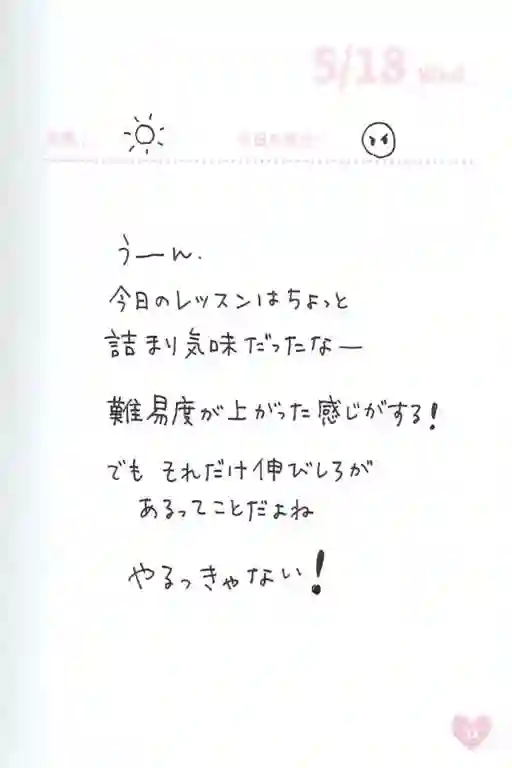 5/18 Wed.
うーん.
今日のレッスンはちょっと
詰まり気味だったなー
難易度が上がった感じがする!
でも それだけ伸びしろが
あるってことだよね
やるっきゃない!